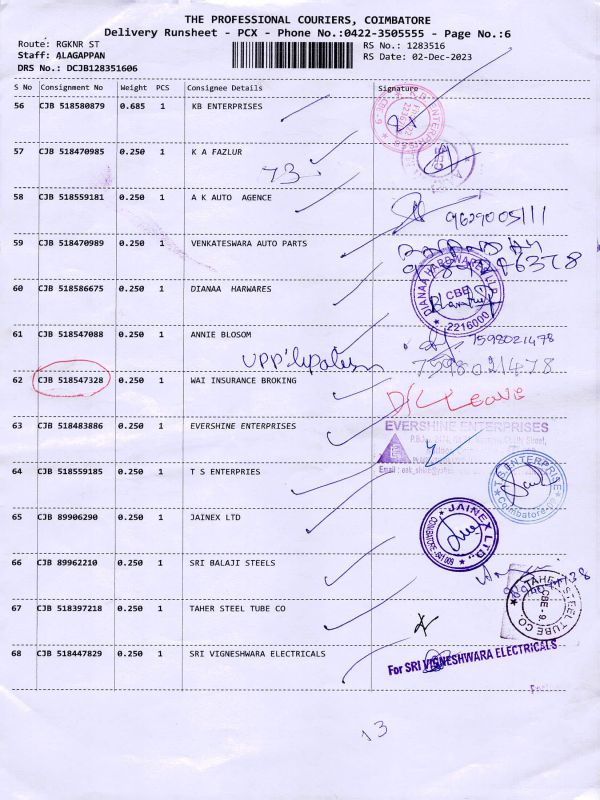 THE PROFESSIONAL COURIERS, COIMBATORE
Delivery Runsheet - PCX - Phone No.:0422-3505555 - Page No.:6
Route: RGKNR ST
RS No.: 1283516
Staff: ALAGAPPAN
RS Date: 02-Dec-2023
DRS No.: DCJB128351606
S No Consignment No Weight PCS Consignee Details Signature
56 CJB 518580879 0.685 1 KB ENTERPRISES
57 CJB 518470985 0.250 1 K A FAZLUR
73
58 CJB 518559181 0.250 1 A K AUTO AGENCE
9629005111
59 CJB 518470989 0.250 1 VENKATESWARA AUTO PARTS
60 CJB 518586675 0.250 1 DIANAA HARWARES
DIANAA HARDWARES LLP
CBE
2216000
61 CJB 518547088 0.250 1 ANNIE BLOSOM
7598021478
7598021478
62 CJB 518547328 0.250 1 WAI INSURANCE BROKING
D/L Leave
63 CJB 518483886 0.250 1 EVERSHINE ENTERPRISES
EVERSHINE ENTERPRISES
64 CJB 518559185 0.250 1 T S ENTERPRIES
T S ENTERPRISE
Coimbatore
65 CJB 89906290 0.250 1 JAINEX LTD
JAINEX LTD
COIMBATORE-641 009
66 CJB 89962210 0.250 1 SRI BALAJI STEELS
67 CJB 518397218 0.250 1 TAHER STEEL TUBE CO
TAHER STEEL TUBE CO.
CBE-9.
68 CJB 518447829 0.250 1 SRI VIGNESHWARA ELECTRICALS
For SRI VIGNESHWARA ELECTRICALS
13